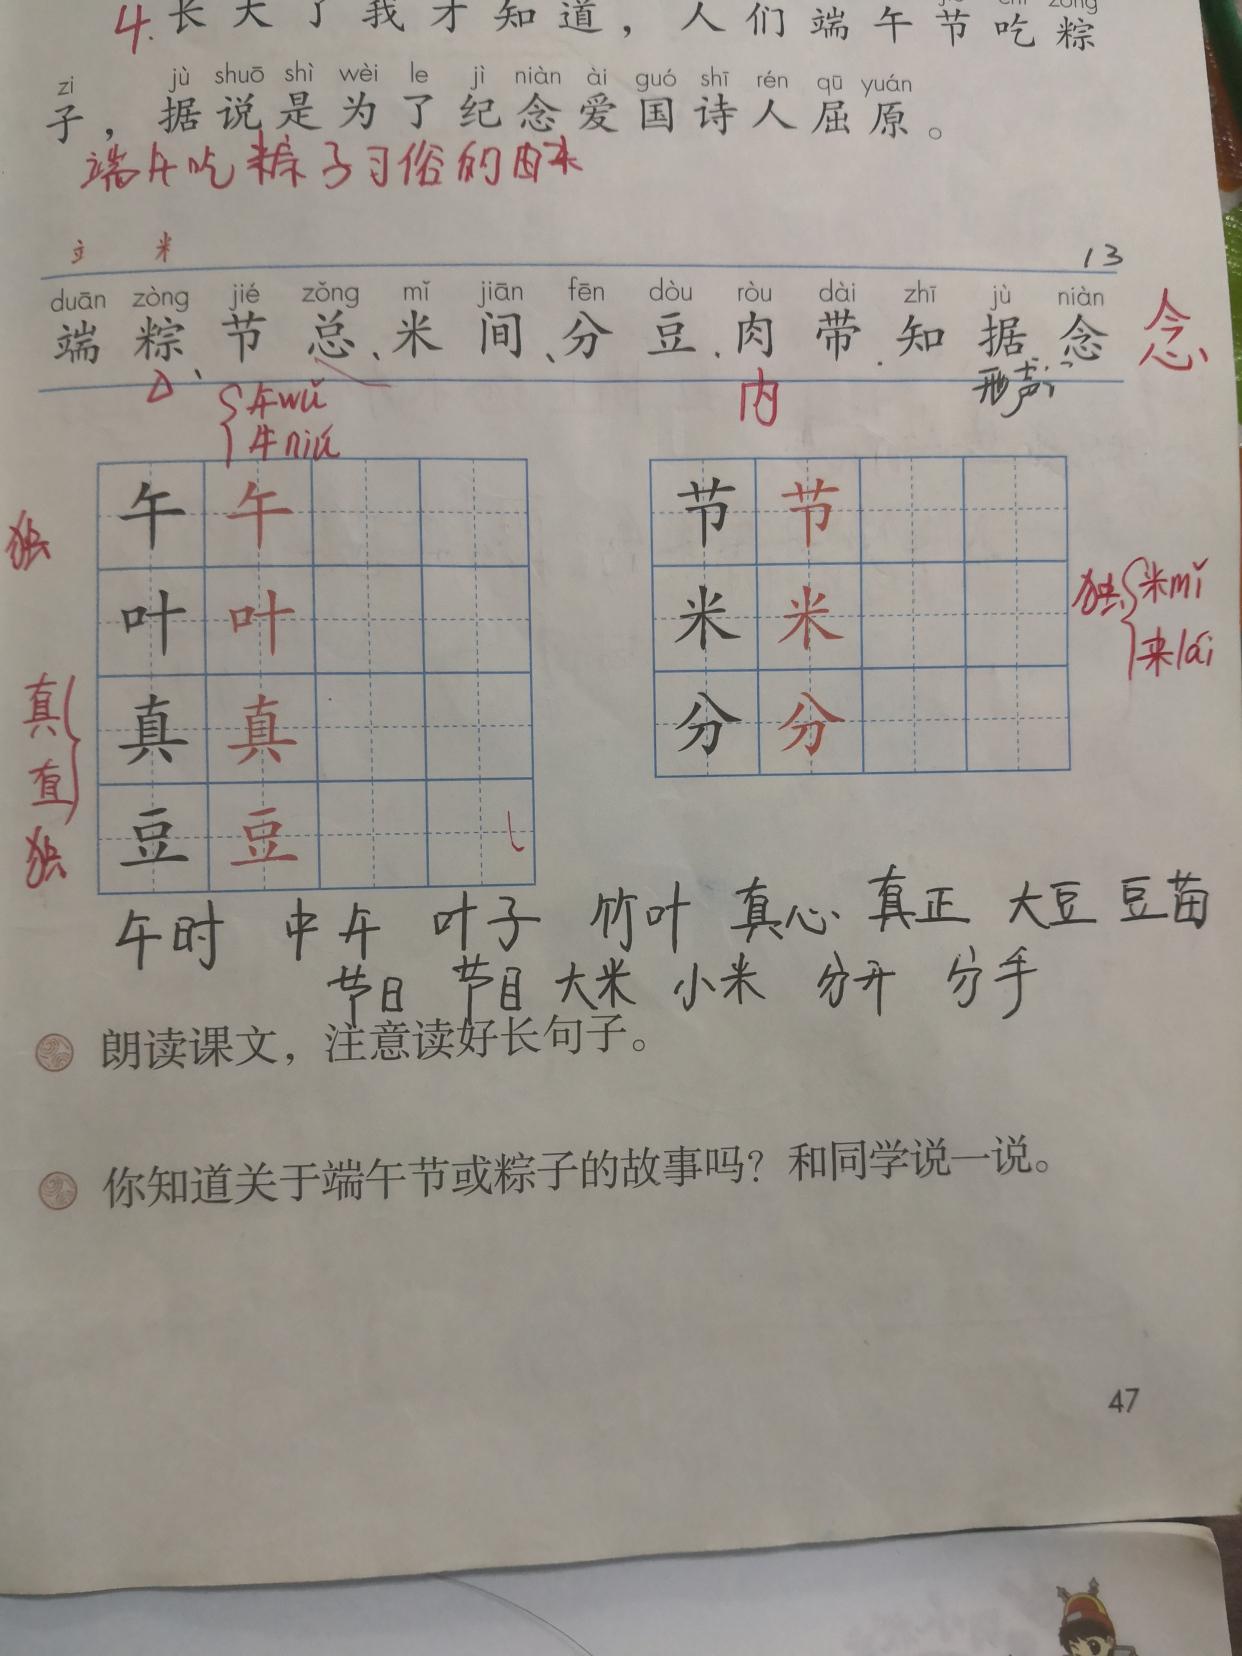 jié chī zòng
4. 长大了我才知道，人们端午节吃粽
zi jù shuō shì wèi le jì niàn ài guó shī rén qū yuán
子，据说是为了纪念爱国诗人屈原。
端午吃粽子习俗的由来
立 米 13
duān zòng jié zǒng mǐ jiān fēn dòu ròu dài zhī jù niàn
端 粽 节 总、米 间、分 豆.肉 带.知 据 念 念
内 形声
午wǔ
牛niú
午 午 节 节
独
叶 叶 米 米 独 米mǐ
来lái
真 真 真 分 分
直
独 豆 豆
午时 中午 叶子 竹叶 真心 真正 大豆 豆苗
节日 节目 大米 小米 分开 分手
朗读课文，注意读好长句子。
你知道关于端午节或粽子的故事吗？和同学说一说。
47